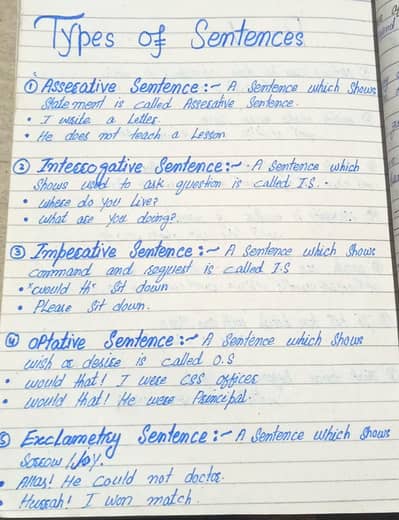 Types of Sentences
① Asserative Sentence :- A Sentence which Shows
Statement is called Asserative Sentence.
• I write a Letter.
• He does not teach a Lesson
② Interrogative Sentence :- A Sentence which
Shows used to ask question is called I.S.
• where do you Live?
• what are you doing?
③ Imperative Sentence :- A Sentence which Shows
command and request is called I.S
• Sit down
• Please Sit down.
④ Optative Sentence :- A Sentence which Shows
wish or desire is called O.S
• would that! I were CSS officer
• would that! He were Principal.
⑤ Exclametry Sentence :- A Sentence which Shows
Sorrow / Joy.
• Alhas! He could not doctor.
• Hurrah! I won match.